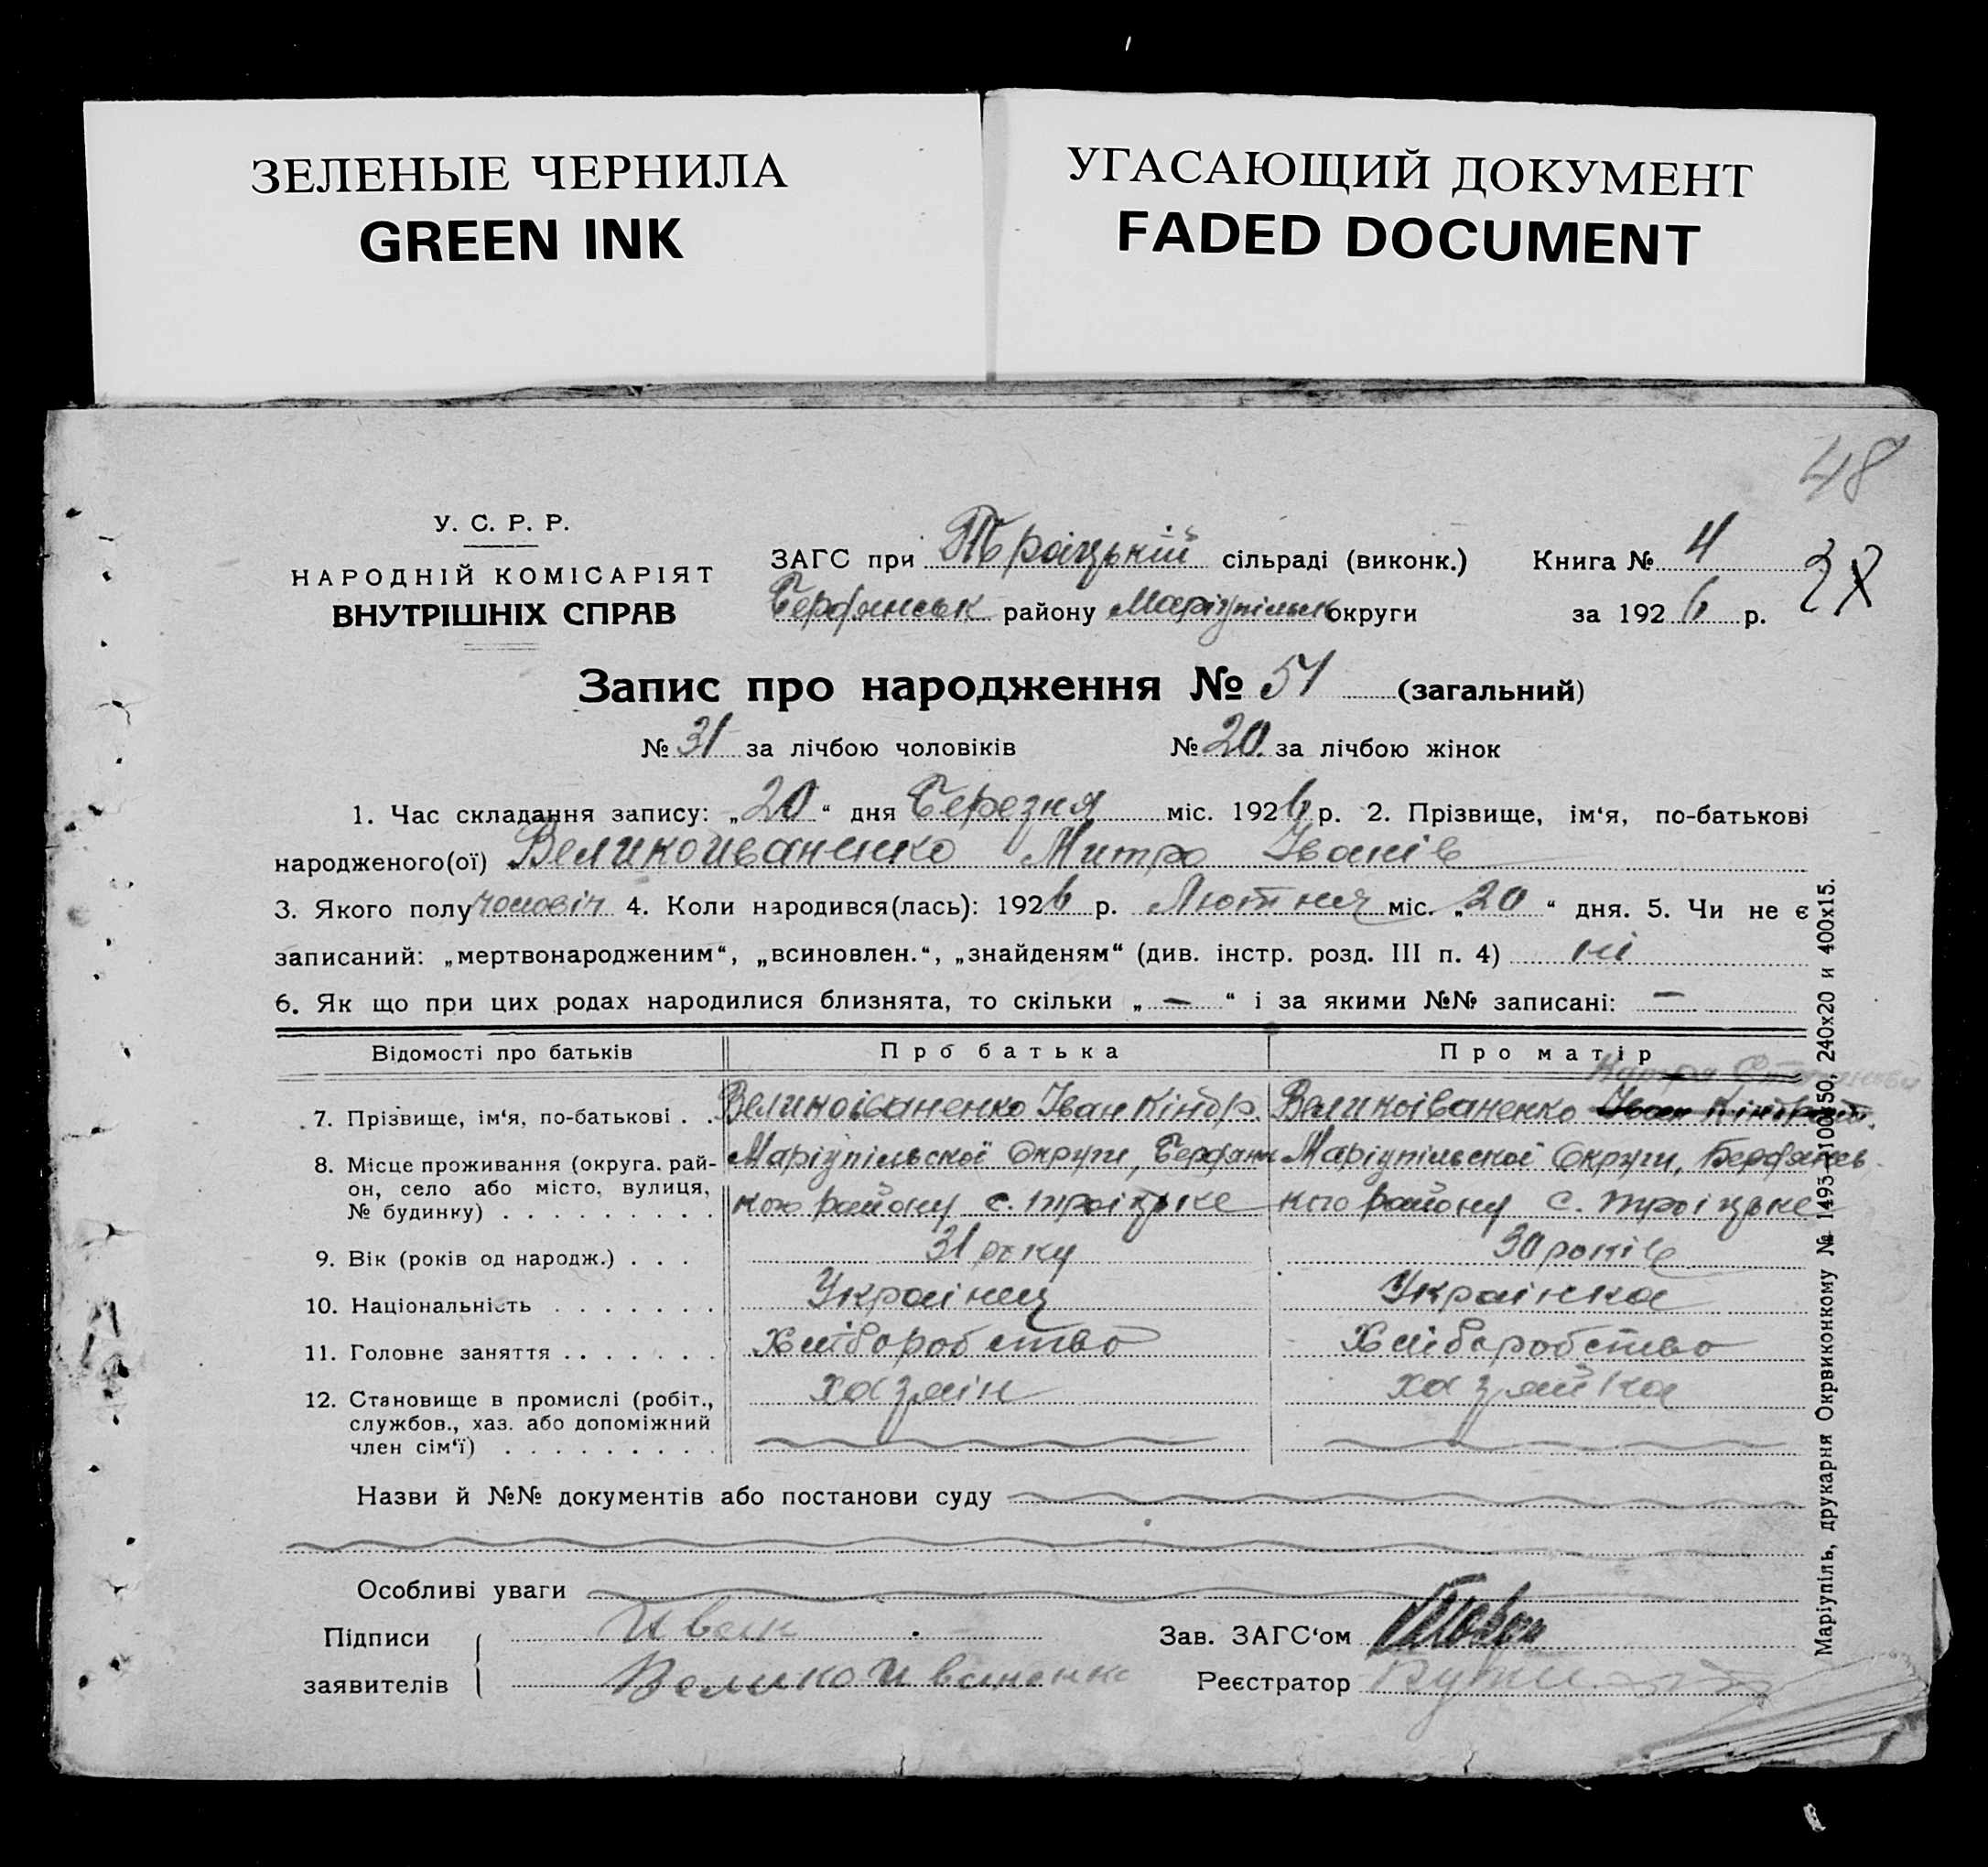 ЗЕЛЕНЫЕ ЧЕРНИЛА
GREEN INK
УГАСАЮЩИЙ ДОКУМЕНТ
FADED DOCUMENT
48
У. С. Р. Р.
НАРОДНІЙ КОМІСАРІЯТ
ВНУТРІШНІХ СПРАВ
ЗАГС при Траіцькій сільраді (виконк.)
Бердянськ району Маріупільськ округи
Книга № 4
за 1926 р.
Запис про народження № 51 (загальний)
№ 31 за лічбою чоловіків № 20 за лічбою жінок
1. Час складання запису: „20“ дня Березня міс. 1926 р. 2. Прізвище, ім‘я, по-батькові
народженого(ої) Великоиваненко Митро Іванів
3. Якого полу чоловіч 4. Коли народився(лась): 1926 р. Лютня міс. „20“ дня. 5. Чи не є
записаний: „мертвонародженим“, „всиновлен.“, „знайденям“ (див. інстр. розд. III п. 4) ні
6. Як що при цих родах народилися близнята, то скільки „—“ і за якими №№ записані: —
Відомості про батьків Про батька Про матір
7. Прізвище, ім‘я, по-батькові . . Великоіваненко Іван Кіндр. Великоіваненко Іван Кіндрат.
8. Місце проживання (округа, рай- Маріупільскоі Округи, Бердянс Маріупільскоі Округи, Бердянсь
он, село або місто, вулиця,
№ будинку) . . . . . . . . . кого району с. Троіцьке кого району с. Троіцьке
9. Вік (років од народж.) . . . 31 року 30 років
10. Національність . . . . . . . Украінец Украінка
11. Головне заняття . . . . . . . Хліборобство Хліборобство
12. Становище в промислі (робіт., хазяін хазяйка
службов., хаз. або допоміжний
член сім‘ї) . . . . . . . . .
Назви й №№ документів або постанови суду
Особливі уваги
Підписи Иван
заявителів Великоиваненко
Зав. ЗАГС‘ом
Реєстратор
Маріупіль, друкарня Окрвиконкому № 1493-100150, 240х20 и 400х15.